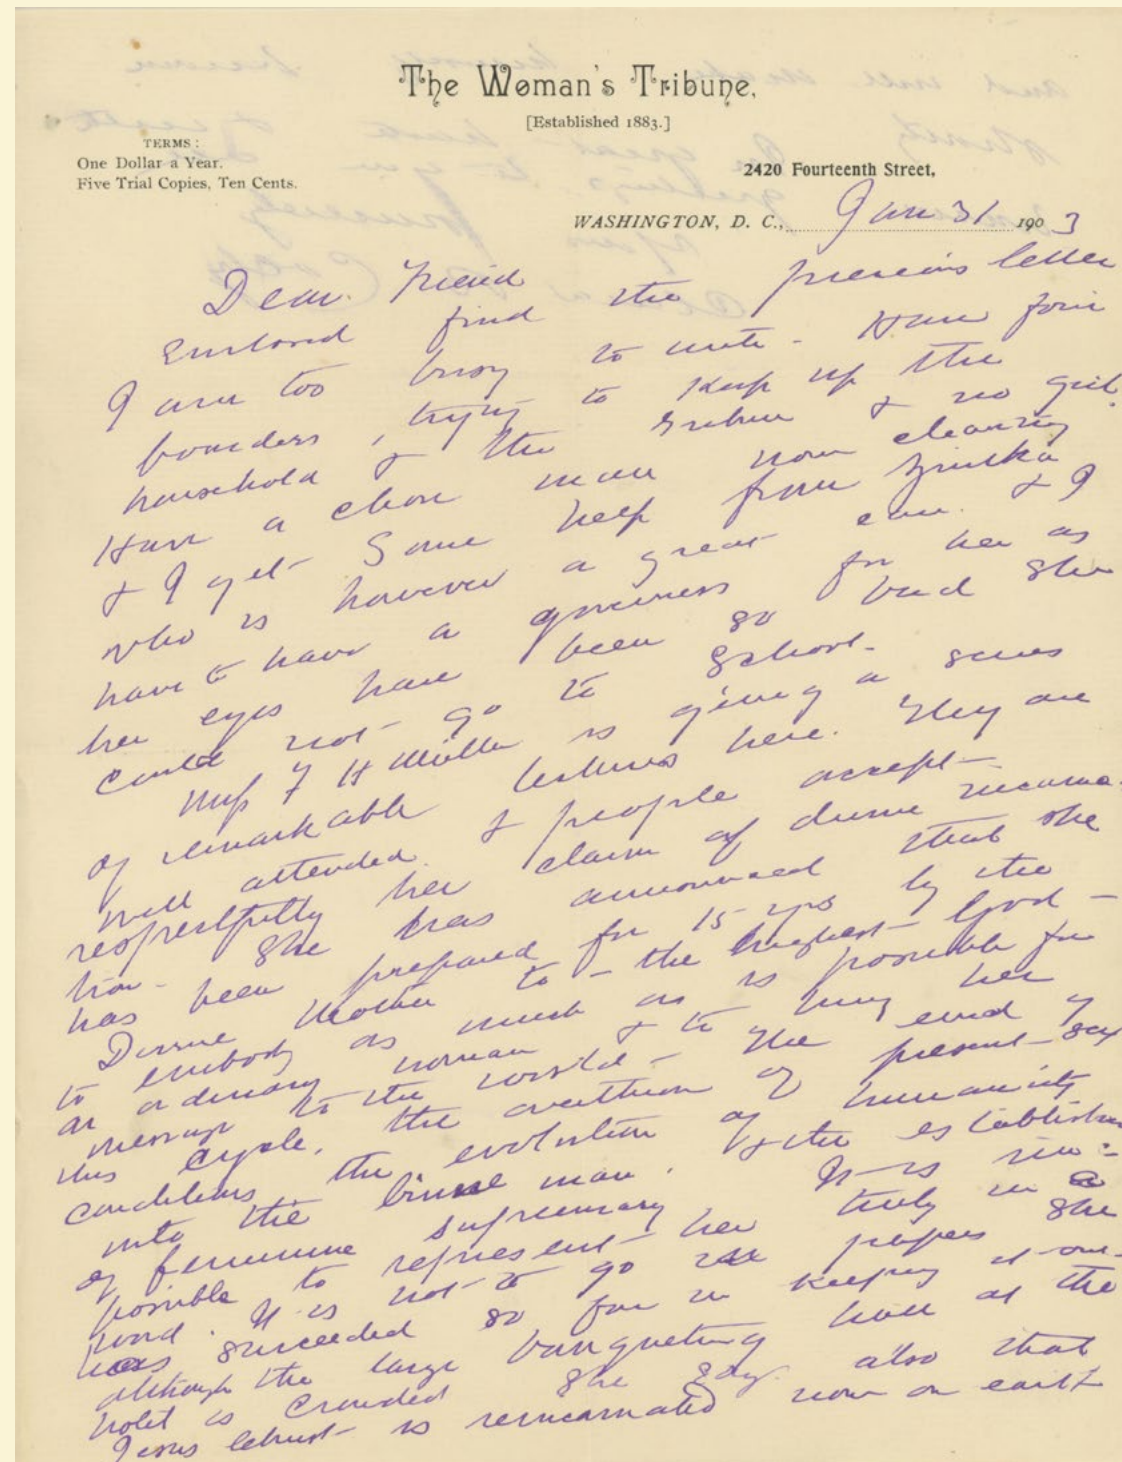 The Woman's Tribune.
[Established 1883.]
TERMS:
One Dollar a Year.
Five Trial Copies, Ten Cents.
2420 Fourteenth Street,
WASHINGTON, D. C., Jan 31 1903
Dear Friend
Enclosed find the precious letter
I am too busy to write - Have four
boarders, trying to keep up the
household & the Tribune & no girl.
Have a chore man now cleaning
& I get some help from Zintka
who is however a great care. & I
have to have a governess for her as
her eyes have been so bad she
could not go to school.
Miss F H Miller is giving a series
of remarkable lectures here. They are
well attended. & people accept
respectfully her claim of divine incarna-
tion - She has announced that she
has been prepared for 15 yrs by the
Divine Mother to - the highest God -
to embody as much as is possible for
an ordinary woman & to bring her
message to the world - The end of
this cycle, the overthrow of present sex
conditions the evolution of humanity
into the man. & the establishm
of feminine supremacy It is im-
possible to represent her truly in a
word. It is not to go in papers She
has succeeded so far in keeping it out
although the large banqueting hall at the
hotel is crowded She says also that
Jesus Christ is reincarnated now on earth